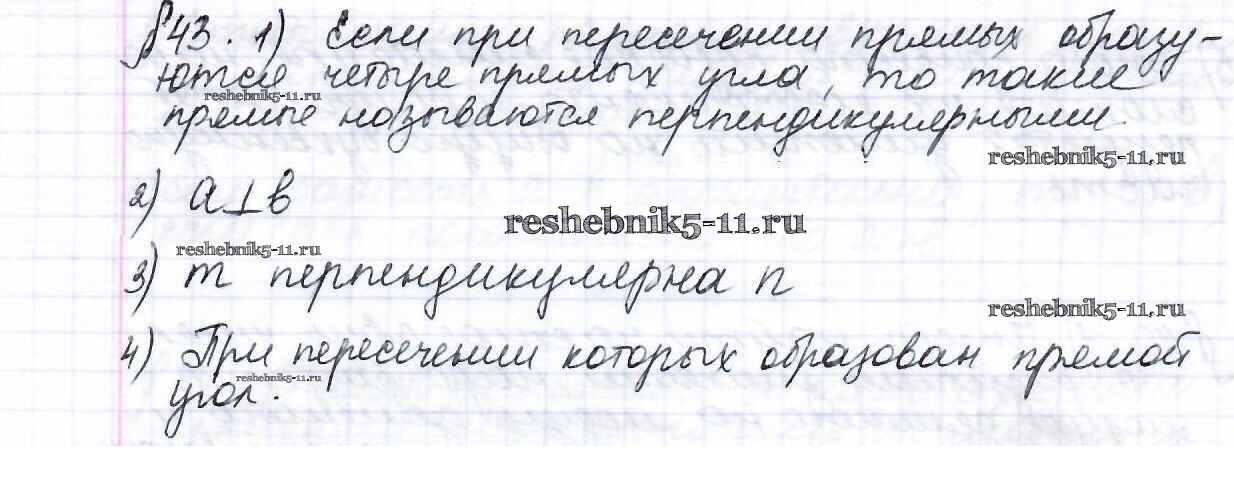 §43. 1) Если при пересечении прямых образу-
ются четыре прямых угла, то такие
reshebnik5-11.ru
прямые называются перпендикулярными.
reshebnik5-11.ru
2) a⊥b
reshebnik5-11.ru
reshebnik5-11.ru
3) m перпендикулярна n
reshebnik5-11.ru
4) При пересечении которых образован прямой
reshebnik5-11.ru
угол.